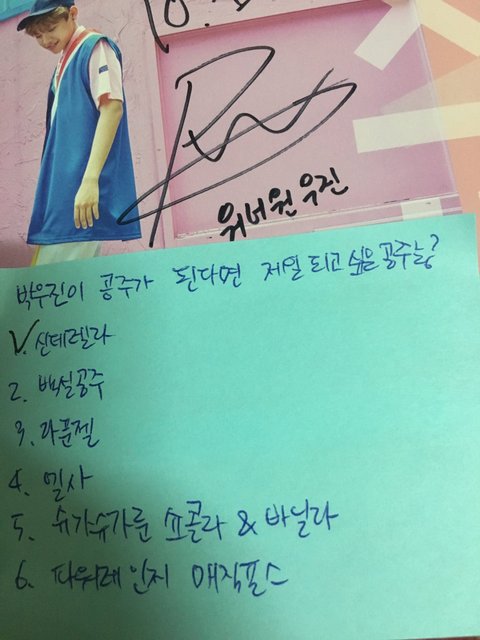 워너원 우진
박우진이 공주가 된다면 제일 되고 싶을 공주는?
1. 신데렐라
2. 백설공주
3. 라푼젤
4. 엘사
5. 슈가슈가룬 쇼콜라 & 바닐라
6. 파워레인저 매직포스